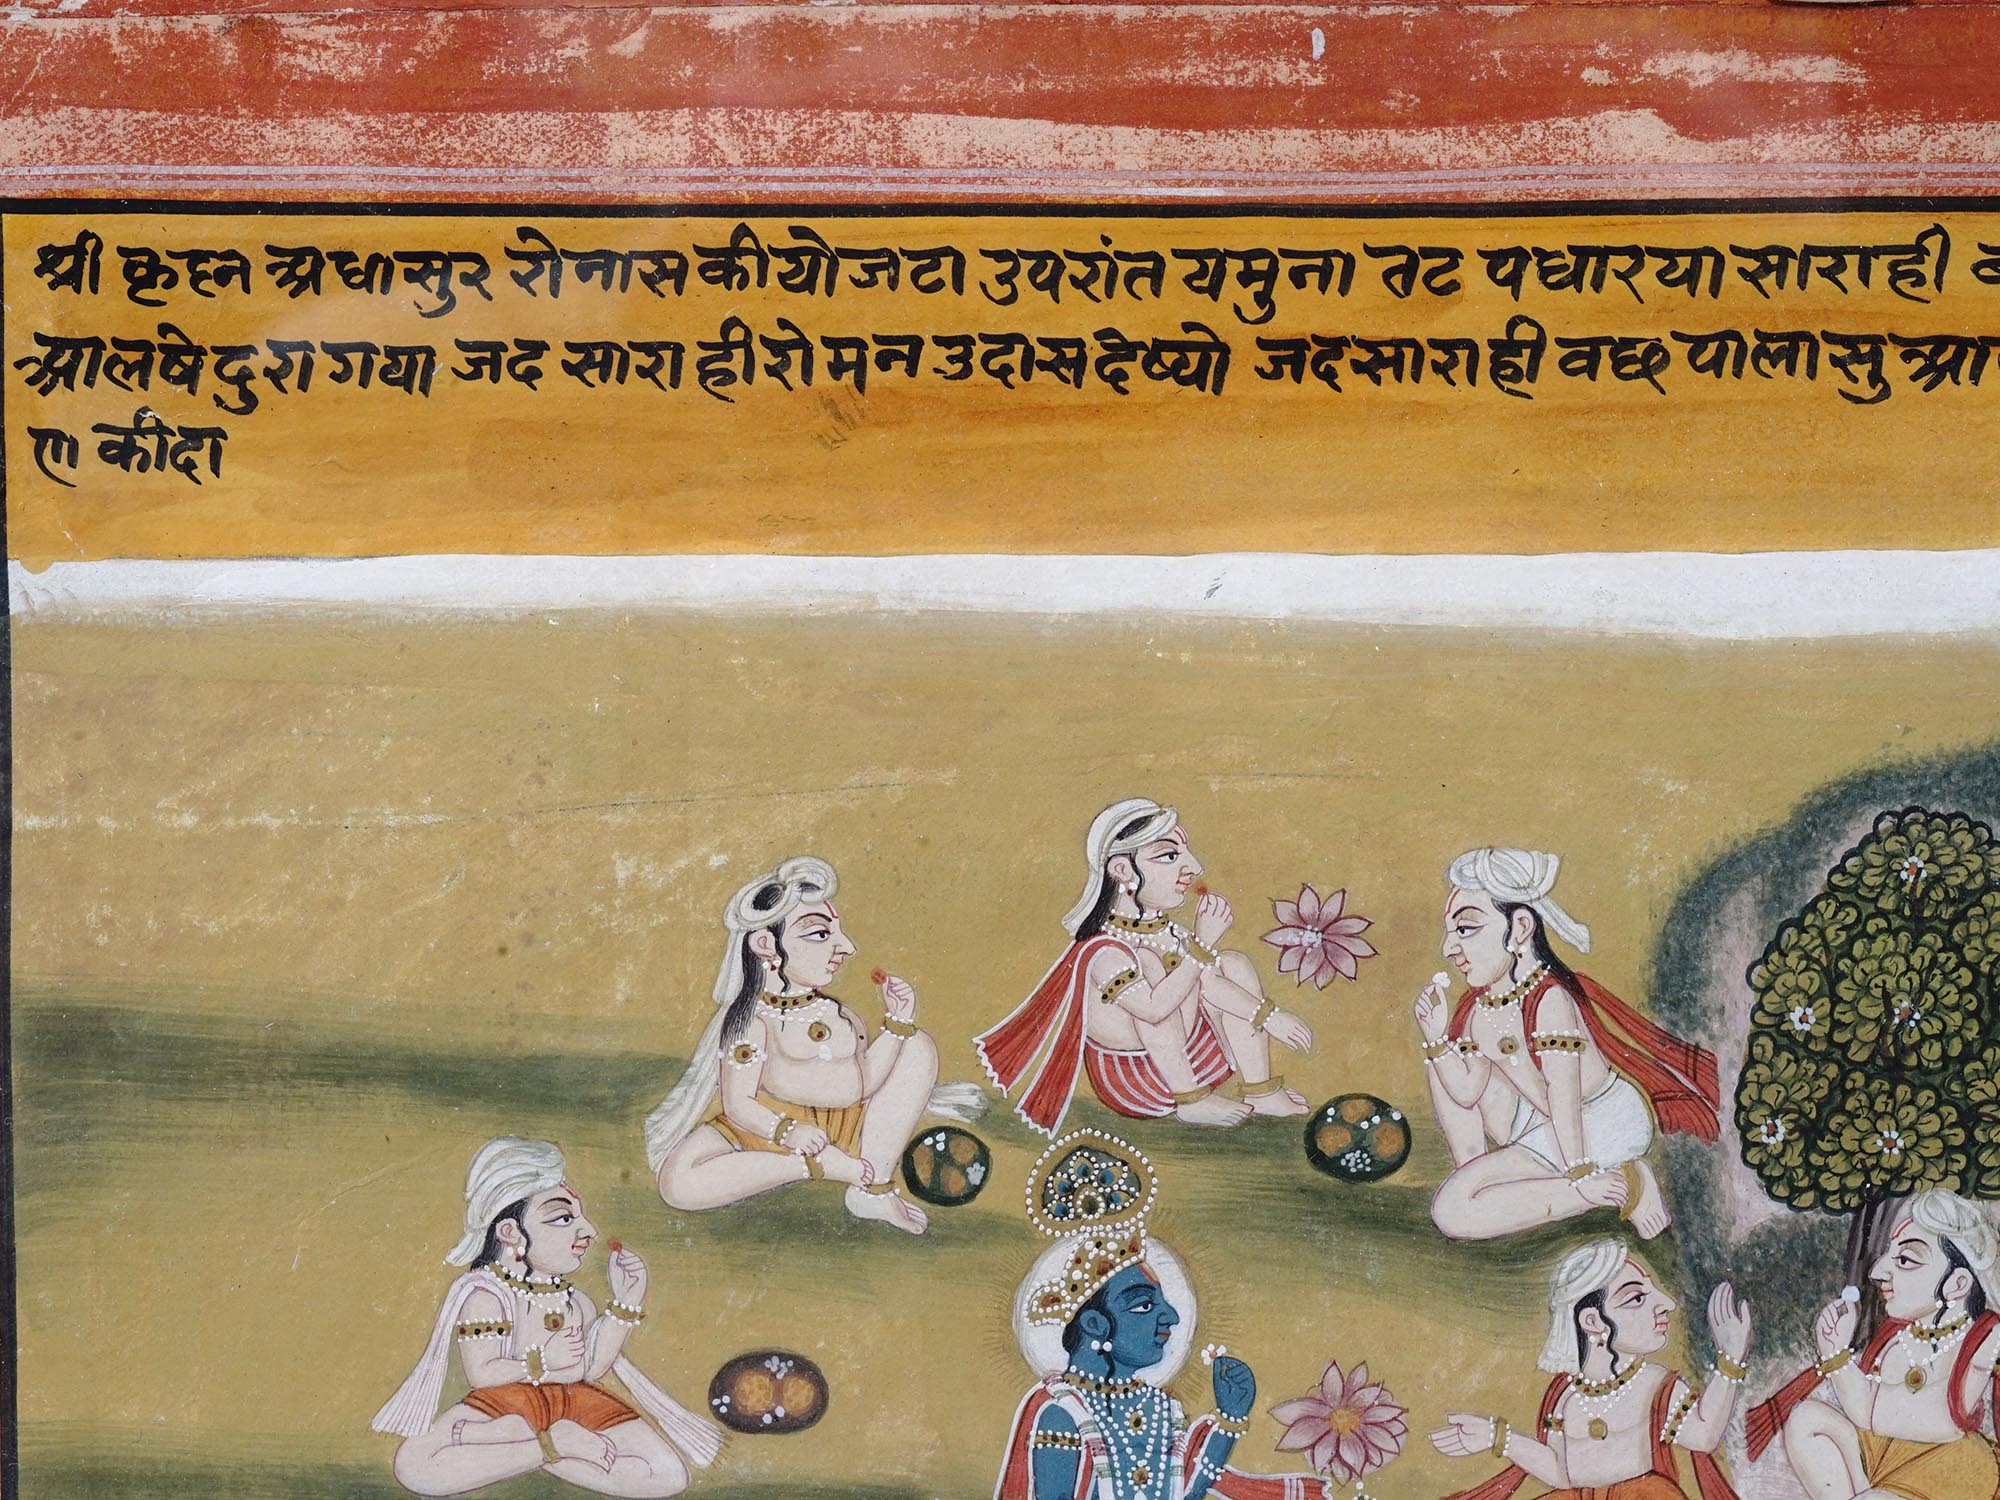 श्री कृह्न अघासुर रो नास कीयो जटा उपरांत यमुना तट पधारया सारा ही
आलषे दुरा गया जद सारा ही रो मन उदास देष्यो जद सारा ही वछ पाला सु
ण कीदा